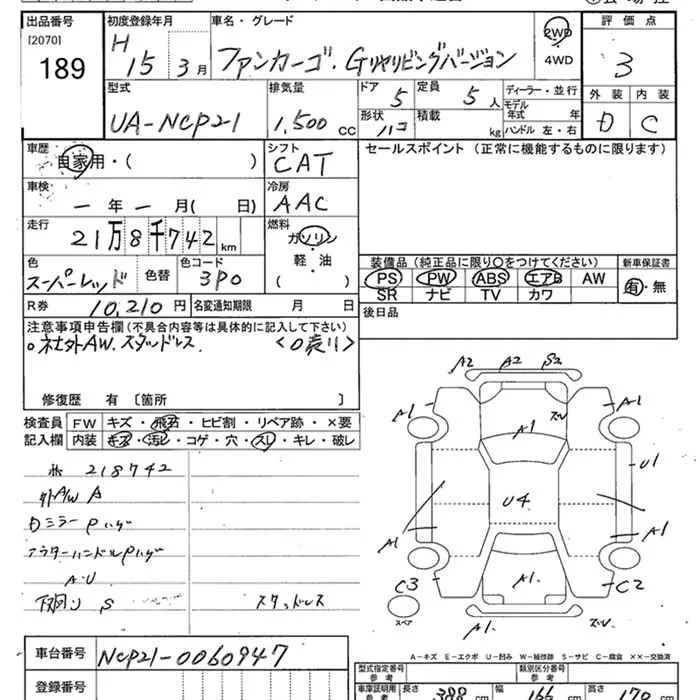 出品番号 初度登録年月 車名・グレード 評価点
[2070]
189
H 15 3月 ファンカーゴ. Gリヤリビングバージョン 2WD 4WD 3
型式 排気量 ドア 定員 ディーラー・並行 外装 内装
UA-NCP21 1,500 CC 5 5人 モデル年式 年 D C
形状 ハコ 積載 kg ハンドル 左・右
車歴 自家用・( ) シフト CAT セールスポイント(正常に機能するものに限ります)
車検 - 年 - 月( 日) 冷房 AAC
走行 21万8千742km 燃料 ガソリン・軽・油 ( )
色 スーパーレッド 色替 色コード 3P0
装備品(純正品に限り○をつけてください) 新車保証書
PS PW ABS エアB AW 有・無
SR ナビ TV カワ
R券 10,210円 名変通知期限 月 日 後日品
注意事項申告欄(不具合内容等は具体的に記入して下さい)
○社外AW. スタッドレス.
修復歴 有 〔箇所 〕
検査員記入欄 FW キズ・飛石・ヒビ割・リペア跡・×要
内装 キズ・汚レ・コゲ・穴・スレ・キレ・破レ
218742
外A/W A
Dミラー Pハゲ
アウターハンドルPハゲ
A・U
下回り S スタッドレス
A2 A2 S2
A1 A1
A1
U1
U4
A1 A1
C3 A1. C2
スペア
A1.
A-キズ E-エクボ U-凹み W-補修跡 S-サビ C-腐食 ××-交換済
車台番号 NCP21-0060947
登録番号
型式指定番号 類別区分番号
参考 参考
車庫証明用 参考 長さ 388 cm 幅 166 cm 高さ 170 cm